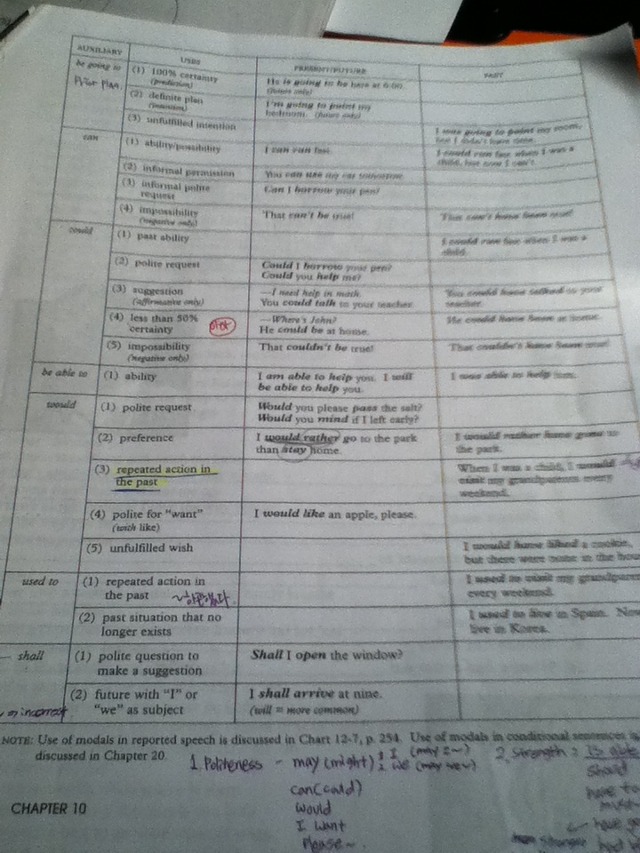 AUXILIARY USES PRESENT/FUTURE PAST
be going to (1) 100% certainty He is going to be here at 6:00.
(prediction) (future only)
Prior Plan (2) definite plan I'm going to paint my
(intention) bedroom. (future only)
(3) unfulfilled intention I was going to paint my room,
but I didn't have time.
can (1) ability/possibility I can run fast. I could run fast when I was a
child, but now I can't.
(2) informal permission You can use my car tomorrow.
(3) informal polite Can I borrow your pen?
request
(4) impossibility That can't be true! That can't have been true!
(negative only)
could (1) past ability I could run fast when I was a
child.
(2) polite request Could I borrow your pen?
Could you help me?
(3) suggestion —I need help in math. You could have talked to your
(affirmative only) You could talk to your teacher. teacher.
(4) less than 50% —Where's John? He could have been at home.
certainty He could be at home.
(5) impossibility That couldn't be true! That couldn't have been true!
(negative only)
be able to (1) ability I am able to help you. I will I was able to help him.
be able to help you.
would (1) polite request Would you please pass the salt?
Would you mind if I left early?
(2) preference I would rather go to the park I would rather have gone to
than stay home. the park.
(3) repeated action in When I was a child, I would
the past visit my grandparents every
weekend.
(4) polite for "want" I would like an apple, please.
(with like)
(5) unfulfilled wish I would have liked a cookie,
but there were none in the
used to (1) repeated action in I used to visit my
the past every weekend.
(2) past situation that no I used to live in Spain.
longer exists live in Korea.
shall (1) polite question to Shall I open the window?
make a suggestion
(2) future with "I" or I shall arrive at nine.
incorrect "we" as subject (will = more common)
NOTE: Use of modals in reported speech is discussed in Chart 12-7, p. 254. Use of modals in conditional sentences is
discussed in Chapter 20.
1. Politeness - may (might) I (may I~) 2. Strength: is able
we (may we~) should
can (could) have to
would must
I want
CHAPTER 10 Please~.